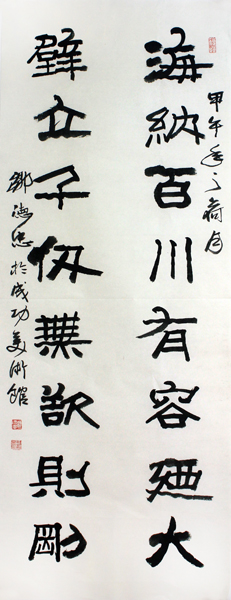 海納百川有容廼大
甲午年之荷月
壁立千仞無欲則剛
鄒德忠於成功美術館